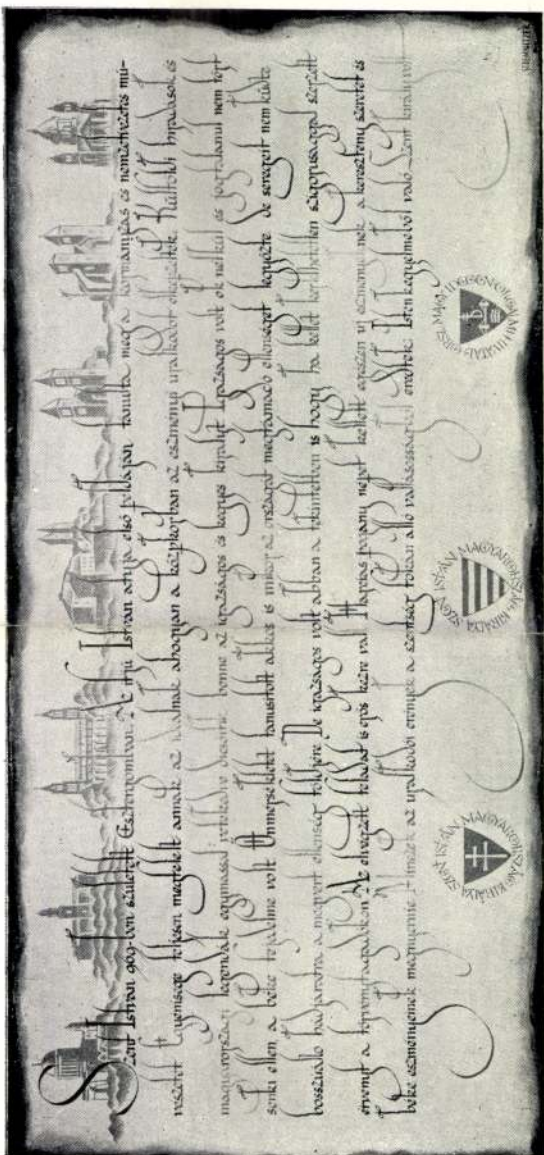 Szent István 969-ben született Esztergomban. Az ifjú István atyja első példáján tanulta meg a kormányzás és nemzetvezetés mű-
vészetét Egyénisége teljesen megfelelt annak az ideálnak ahogyan a középkorban az eszményi uralkodót elképzelték. Külföldi híradások és
magyarországi legendák egymással vetekedve dicsérik benne az igazságos és kegyes királyt Igazságos volt ok nélkül és jogtalanul nem tört
senki ellen a béke fejedelme volt Önmérsékletet tanusított akkor is mikor az országát megtámadó ellenséget legyőzte de seregeit nem küldte
bosszúálló hadjáratra a megvert ellenség földjére De igazságos volt abban a tekintetben is hogy ha kellett kérlelhetetlen szigorúsággal szerzett
érvényt a törvénytagadókon Az elvégzett feladat is erős kézre vall Harcias pogány népet kellett egészen új eszményeknek a keresztény szeretet és
béke eszményeinek megnyernie Mindezek az uralkodói erények a szentség fokán álló vallásosságból eredtek Isten kegyelméből való Szent király volt
SZENT ISTVÁN MAGYARORSZÁG KIRÁLYA
SZENT ISTVÁN MAGYARORSZÁG KIRÁLYA
ORSZ. MAGY. IDEGENFORGALMI HIVATAL